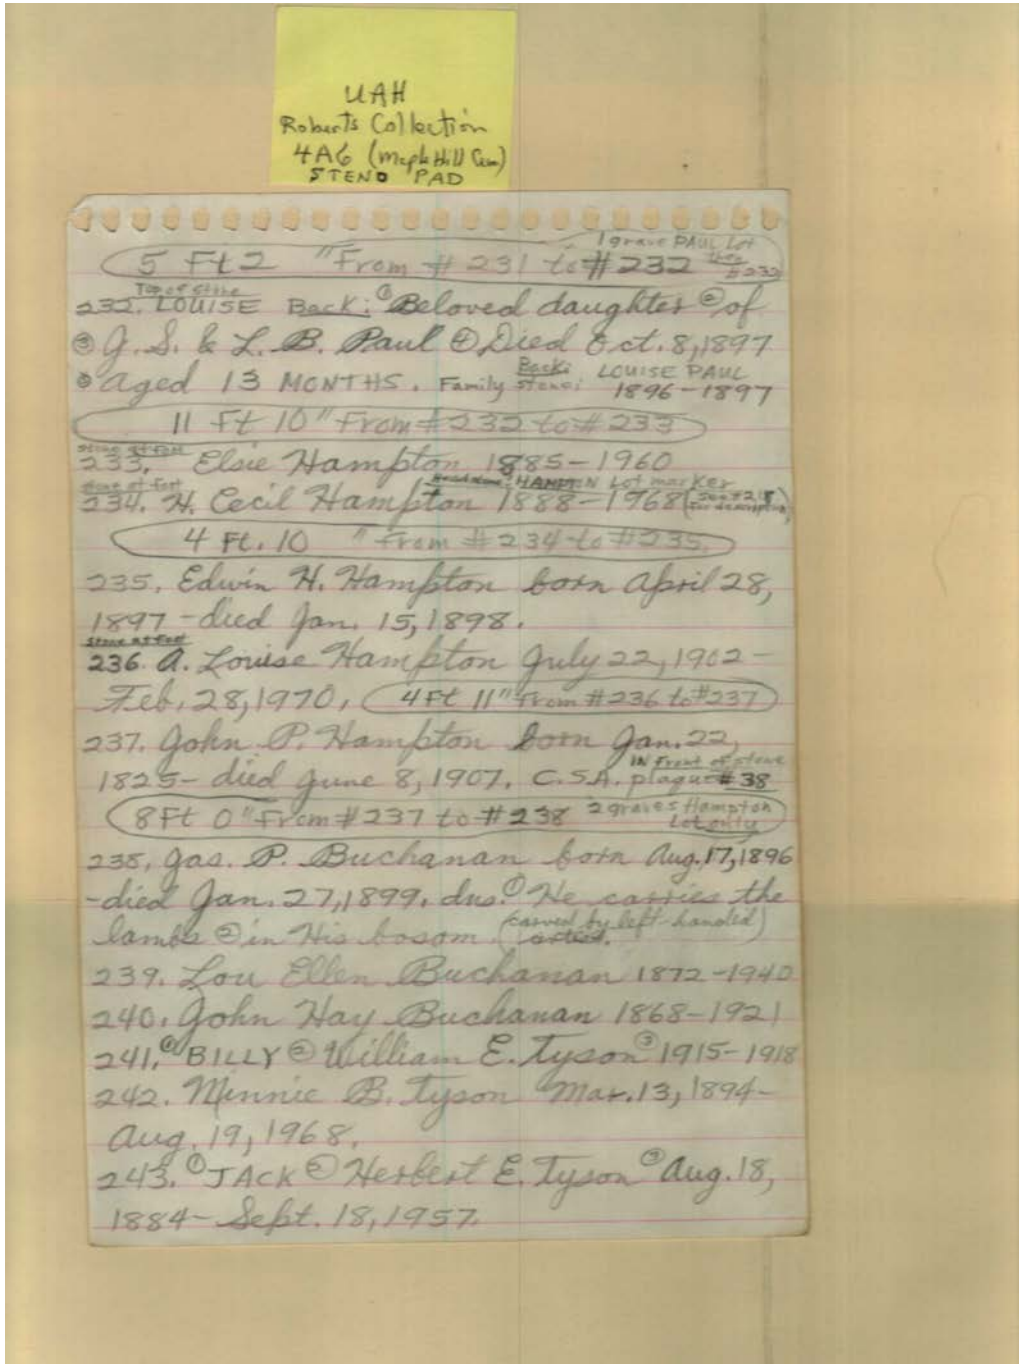 UAH
Roberts Collection
4A6 (Maple Hill Cem)
STENO PAD
1 grave PAUL Lot
5 Ft 2 "From #231 to #232 then #232
Top of stone
232. LOUISE Back: ① Beloved daughter ② of
③ J. S. & L. B. Paul ④ Died Oct. 8, 1897
⑤ aged 13 MONTHS. Family stone: Back: LOUISE PAUL
1896-1897
11 Ft 10" From #232 to #233
stone at foot
233. Elsie Hampton 1885-1960
stone at foot
Head stone: HAMPTON Lot marker
234. H. Cecil Hampton 1888-1968 (See #218 for description)
4 Ft. 10 "From #234 to #235.
235. Edwin H. Hampton born April 28,
1897 - died Jan. 15, 1898.
stone at foot
236. A. Louise Hampton July 22, 1902-
Feb. 28, 1970. 4 Ft 11" From #236 to #237
237. John P. Hampton born Jan. 22,
IN Front of stone
1825- died June 8, 1907. C.S.A. plaque #38
8 Ft 0" From #237 to #238 2 graves Hampton
Lot only
238. Jas. P. Buchanan born Aug. 17, 1896
-died Jan. 27, 1899. dns. ① He carries the
lambs ② in His bosom. (carved by left-handed)
artist.
239. Lou Ellen Buchanan 1872-1940
240. John Hay Buchanan 1868-1921
241. ① BILLY ② William E. Tyson ③ 1915-1918
242. Minnie B. Tyson Mar. 13, 1894-
Aug. 19, 1968.
243. ① JACK ② Herbert E. Tyson ③ Aug. 18,
1884- Sept. 18, 1957.